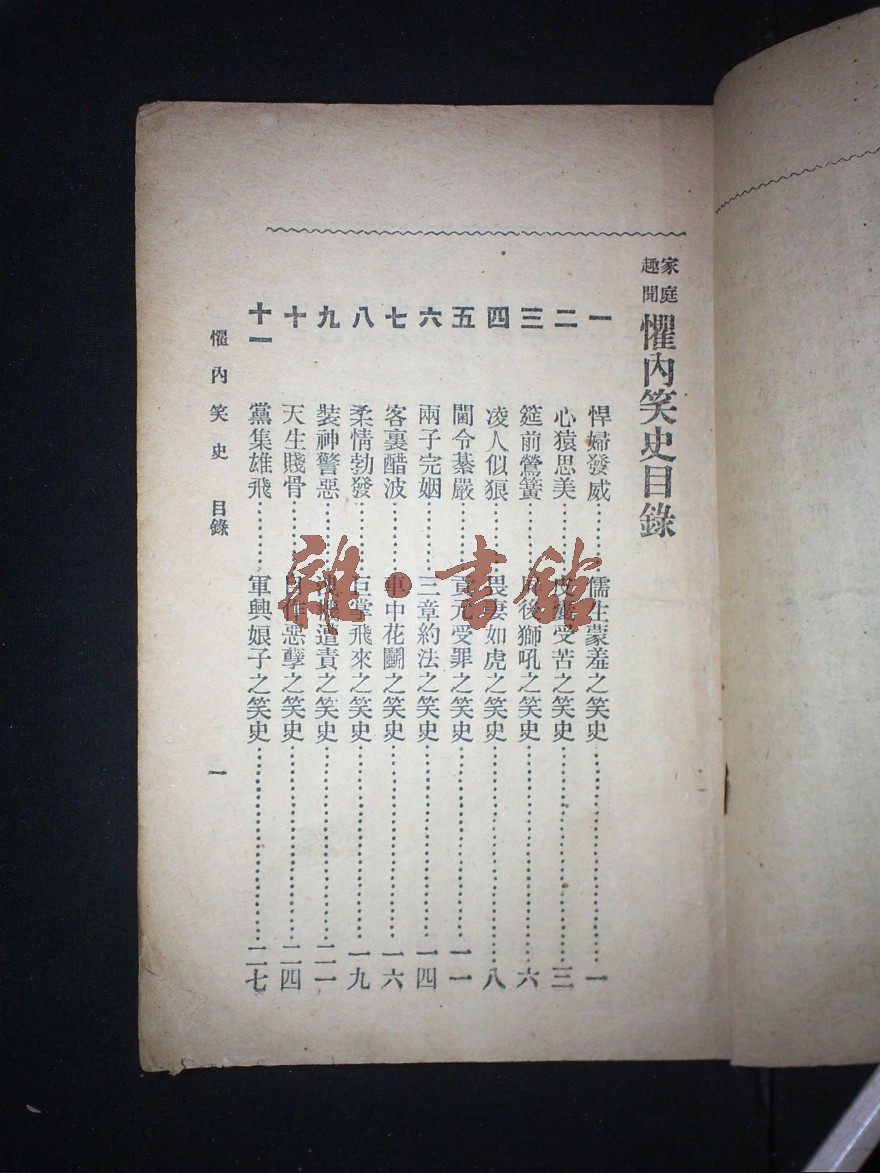 家庭
趣聞
懼內笑史目錄
一 悍婦發威……儒生蒙羞之笑史……一
二 心猿思美……受苦之笑史……三
三 筵前鶯簧……後獅吼之笑史……六
四 凌人似狼……畏妻如虎之笑史……八
五 閫令綦嚴……貢元受罪之笑史……一一
六 兩子完姻……三章約法之笑史……一四
七 客裏醋波……車中花鬭之笑史……一六
八 柔情勃發……巨掌飛來之笑史……一九
九 裝神警惡……遭責之笑史……二一
十 天生賤骨……自作惡孽之笑史……二四
十一 黨集雄飛……軍興娘子之笑史……二七
懼內笑史 目錄 一
雜·書館